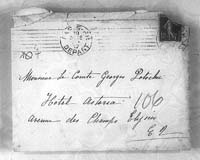 DEPART
Monsieur le Comte Georges Potocki
Hôtel Astoria 106
avenue des Champs Elysées
E. V.